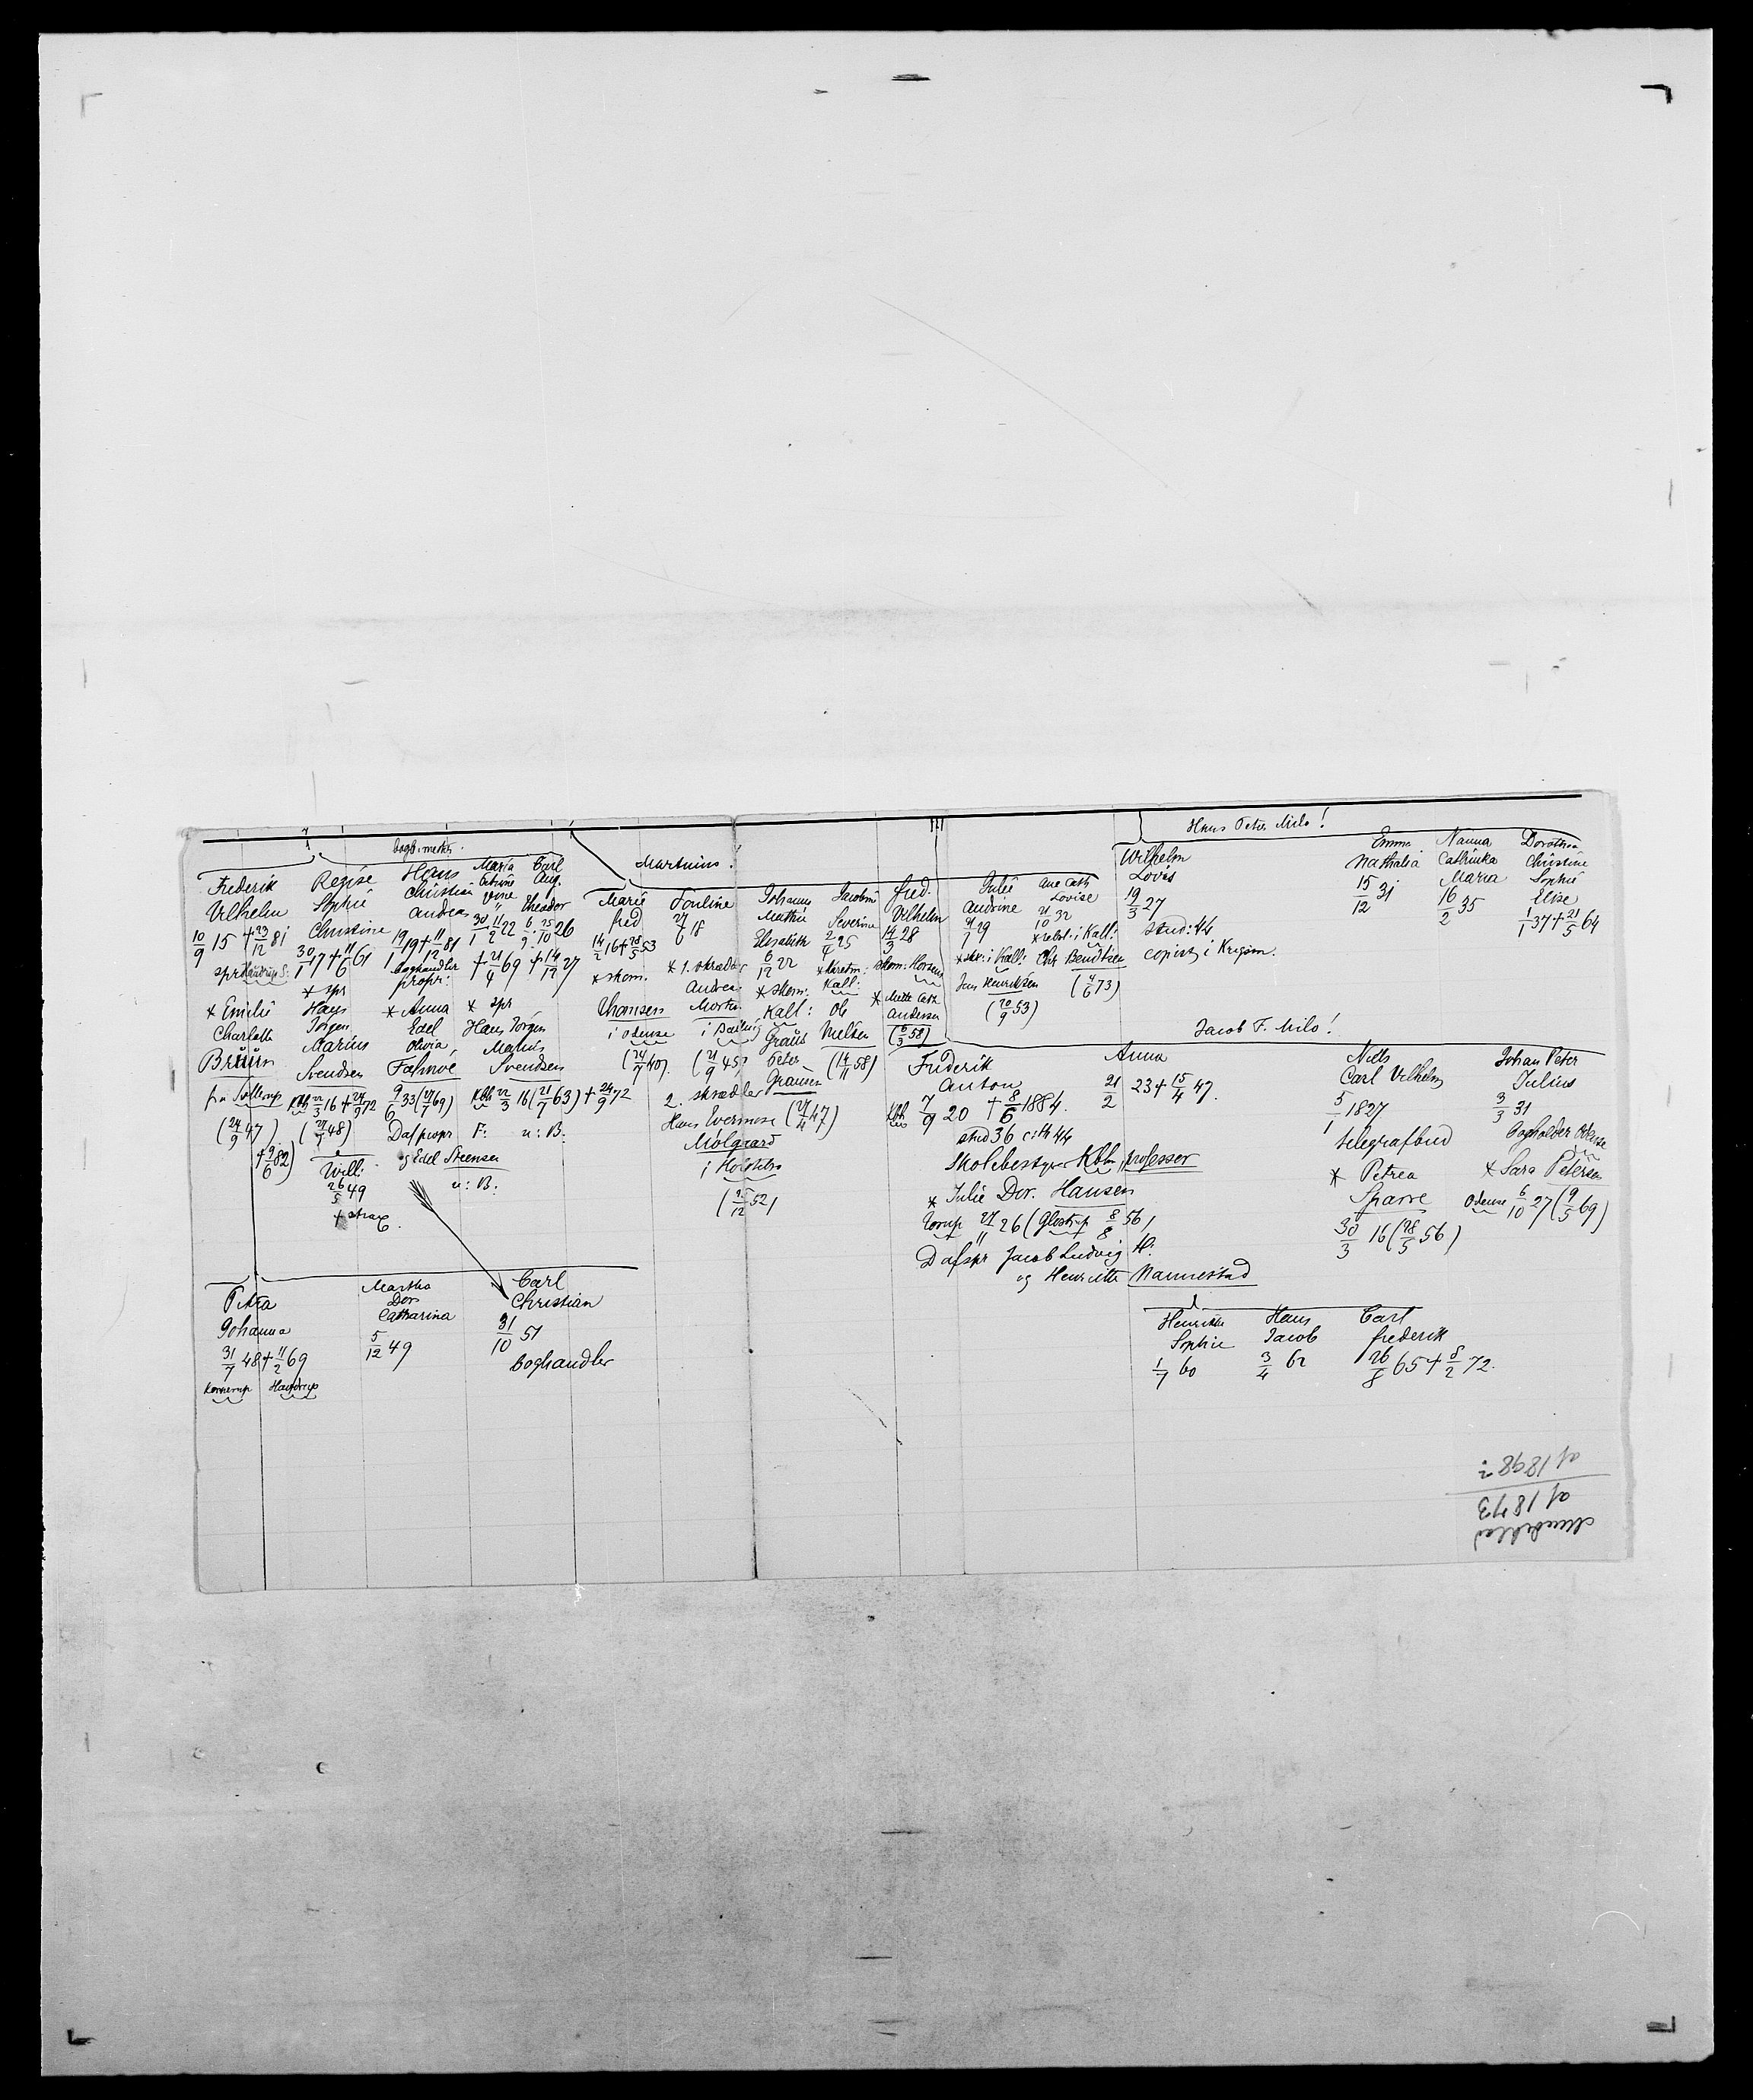 Hans Peter Milo!
Martinius!
Frederik
Vilhelm
10/9 15 + 23/12 81
* Emilie
Charlotte
Bruun
(24/9 47)
+ 9/6 82)
Regise
Sophie
Christine
30/1 17 + 11/6 61
* spr
Hans
Jørgen
Marius
Svendsen
Kbh 22/3 16 + 24/9 72
(27/7 48)
Will:
26/5 49
+ strax
Hans
Christian
Andreas
19/1 19 + 11/12 81
Boghandler
propr:
* Anna
Edel
Olivia
Fahnøe
9/6 33 (27/7 69)
Daf propr F: u: B:
og Edel Steensen
u: B:
Maria
30/1 11/2 22
+ 21/4 69
* spr
Hans Jørgen
Marius
Svendsen
Kbh 22/3 16 (21/7 63) + 24/9 72
Carl
Aug.
Theodor
6/9 : 25/10 26
+ 14/12 27
Marie
fred
14/2 16 + 28/5 53
* skom.
Thomsen
i Odense
(24/7 40)
Pouline
27/6 18
* 1. skrædder
Andrea
Morten
(21/9 45)
2. skrædder
Hans Evermose (27/4 47)
Mølgaard
i Holstebro
Johanne
Mathie
Elisabeth
6/12 22
* skom:
Kall:
Peter
Jacobine
Severine
2/4 25
Kall:
Ole
Nielsen
(14/11 58)
fred.
Vilhelm
14/3 28
skom: Horsens
* Mette Cath
Andersen
(6/3 58)
Julie
Andrine
21/7 29
* skr: i Kall:
Jens Henriksen
(20/9 53)
Ane Cath
Lovise
21/10 32
Chr Bendtsen
(4/6 73)
Wilhelm
Lovis
19/3 27
stud: 44
copist i Krigsm.
Emma
Nathalia
15/12 31
Nanna
Cathinka
Maria
16/2 35
Dorothea
Christine
Sophie
Elise
1/1 37 + 21/5 64
Jacob F. Milo!
Friderik
Anton
7/9 20 + 8/6 1884.
stud 36 c:th 44
Skolebestyrer Kbh, professer
* Julie Dor. Hansen
27/11 26 (Glostrup 8/8 56)
Daf spr Jacob Ludvig H:
og Henriette Nannestad
Anna
21/2 23 + 15/4 47.
Niels
Carl Vilhelm
5/1 1827
telegrafbud
* Petrea
Sparre
30/3 16 (28/5 56)
Johan Peter
Julius
3/3 31
Bogholder Odense
* Sara Petersen
Odense 6/10 27 (9/5 69)
Petra
Johanne
31/7 48 + 11/2 69
Martha
Dor
Catharina
5/12 49
Carl
Christian
31/10 51
Boghandler
Henriette
Sophie
1/7 60
Hans
Jacob
3/4 62
Carl
frederik
26/8 65 + 8/2 72.
Mindeblad
af 1873
af 1898?